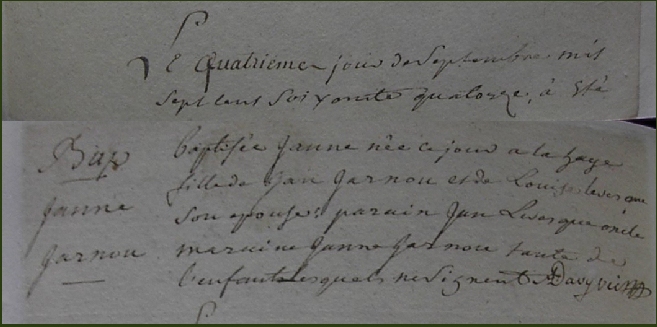 Le Quatrieme jour de Septembre mil
Sept Cent Soixante quatorze, a Eté
Bap
Janne
Jarnou
baptisée Janne née ce jour a la haye
fille de Jan Jarnou et de Louise levesque
Son epouse: parain Jan Levesque oncle
maraine Janne Jarnou tante de
l'enfant lesquels ne Signent